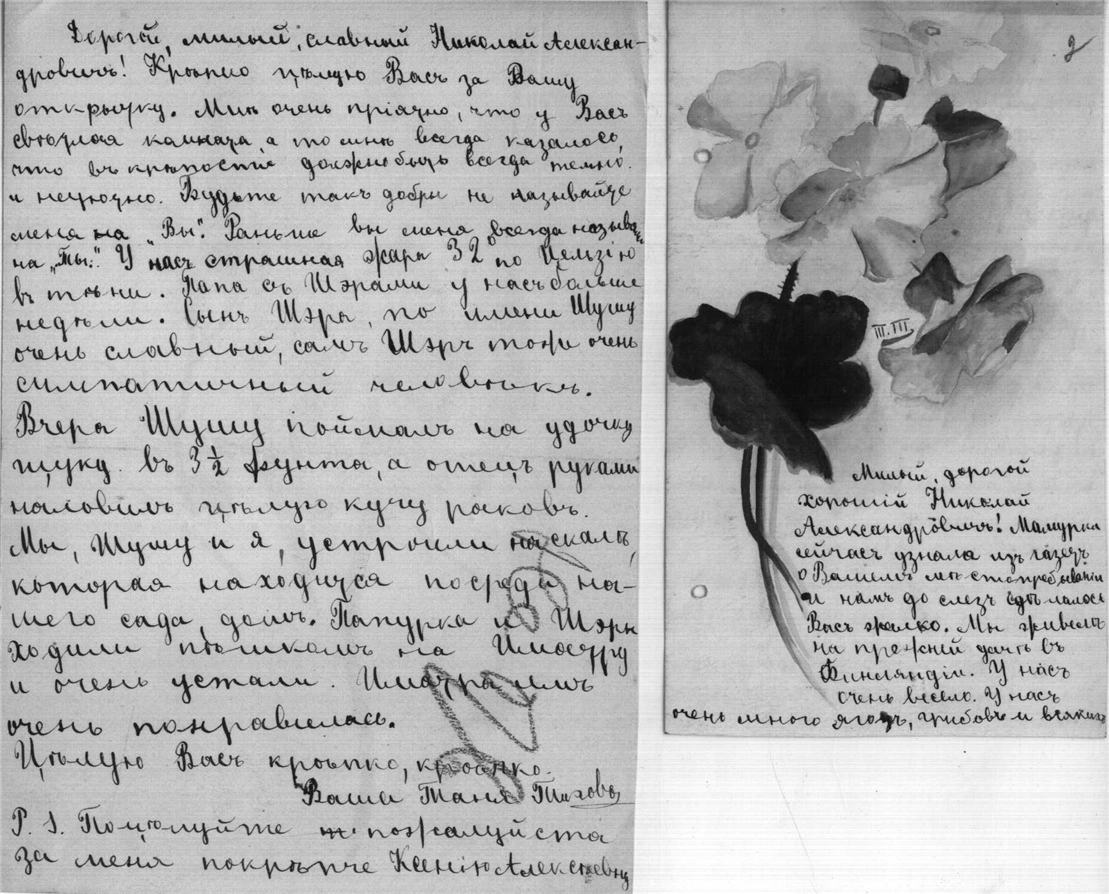 Дорогой, милый, славный Николай Алексан-
дровичъ! Крѣпко цѣлую Васъ за Вашу
открытку. Мнѣ очень пріятно, что у Васъ
свѣтлая камната, а то мнѣ всегда казалось,
что въ крѣпости должно быть всегда темно
и неуютно. Будьте такъ добры не называйте
меня на „Вы". Раньше вы меня всегда называли
на „Ты". У насъ страшная жара 32° по Цельзію
въ тѣни. Папа съ Шэрами у насъ больше
недѣли. Сынъ Шэра, по имени Шушу
очень славный, самъ Шэръ тоже очень
симпатичный человѣкъ.
Вчера Шушу поймалъ на удочку
щуку въ 3½ фунта, а отецъ руками
наловилъ цѣлую кучу раковъ.
Мы, Шушу и я, устроили на скалѣ,
которая находится посреди на-
шего сада, домъ. Папурка и Шэры
ходили пѣшкомъ на Иматру
и очень устали. Иматра имъ
очень понравилась.
Цѣлую Васъ крѣпко, крѣпко.
Ваша Таня Тихова
P. S. Поцѣлуйте пожалуйста
за меня покрѣпче Ксенію Алексѣевну
2
III.III
Милый, дорогой
хорошій Николай
Александровичъ! Мамурка
сейчасъ узнала изъ газетъ
о Вашемъ мѣстопребываніи
и намъ до слезъ сдѣлалось
Васъ жалко. Мы живемъ
на прежней дачѣ въ
Финляндіи. У насъ
очень весело. У насъ
очень много ягодъ, грибовъ и всякихъ